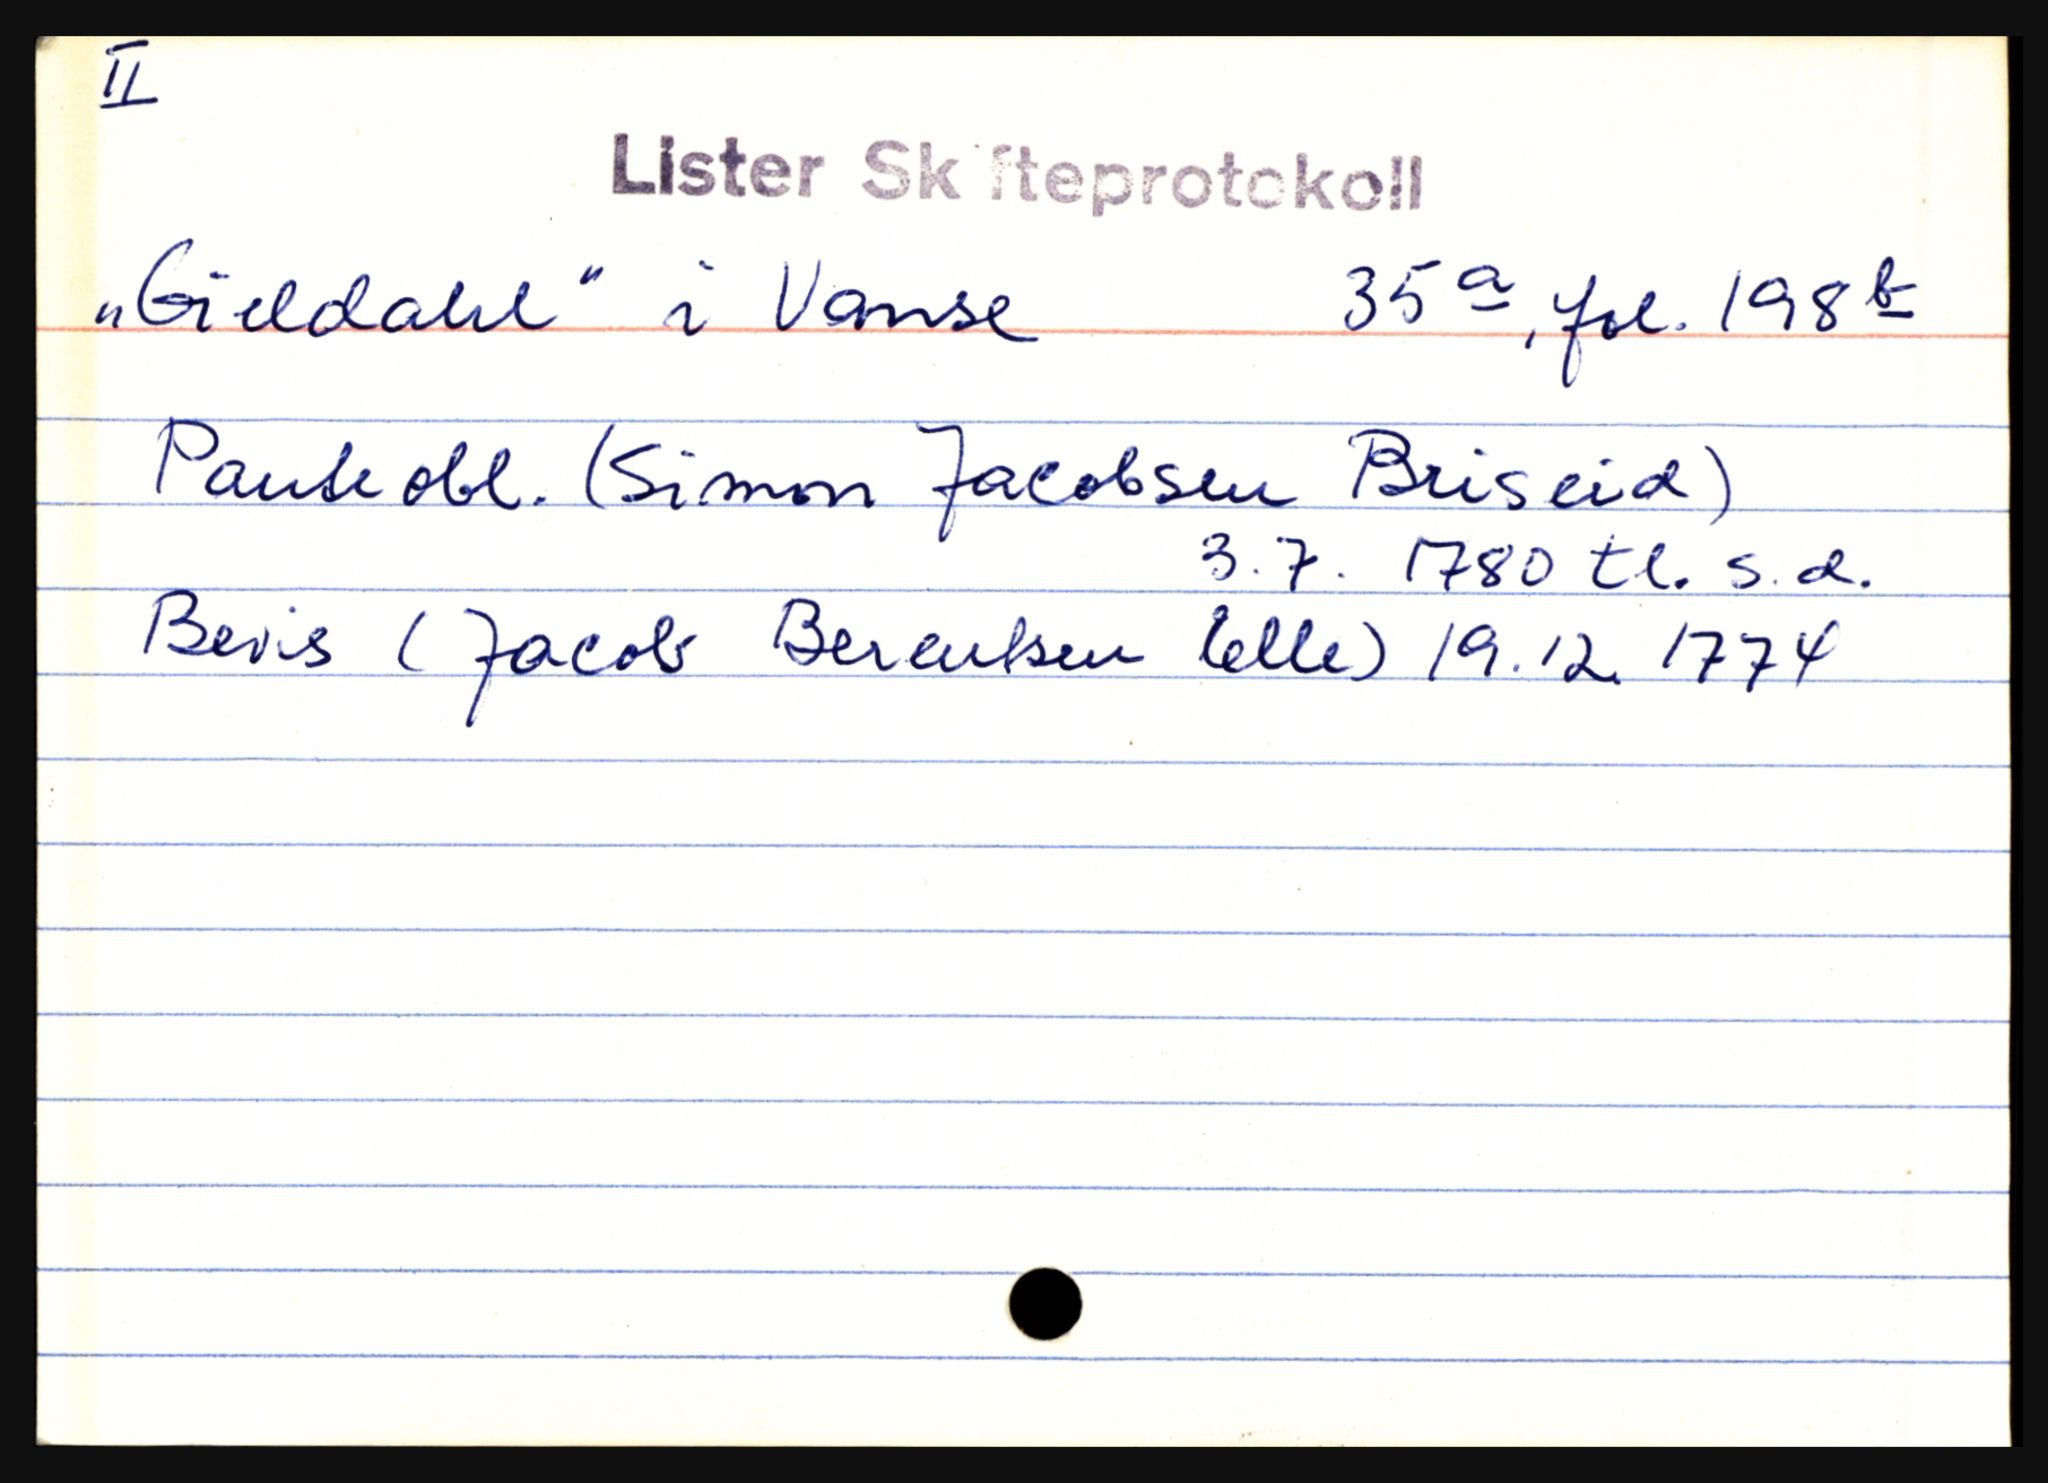 II
Lister Skifteprotokoll
„Gieldahl" i Vanse 35a, fol. 198b
Panteobl. (Simon Jacobsen Briseid)
3.7. 1780 tl. s.d.
Bevis (Jacob Berentsen Lelle) 19.12. 1774